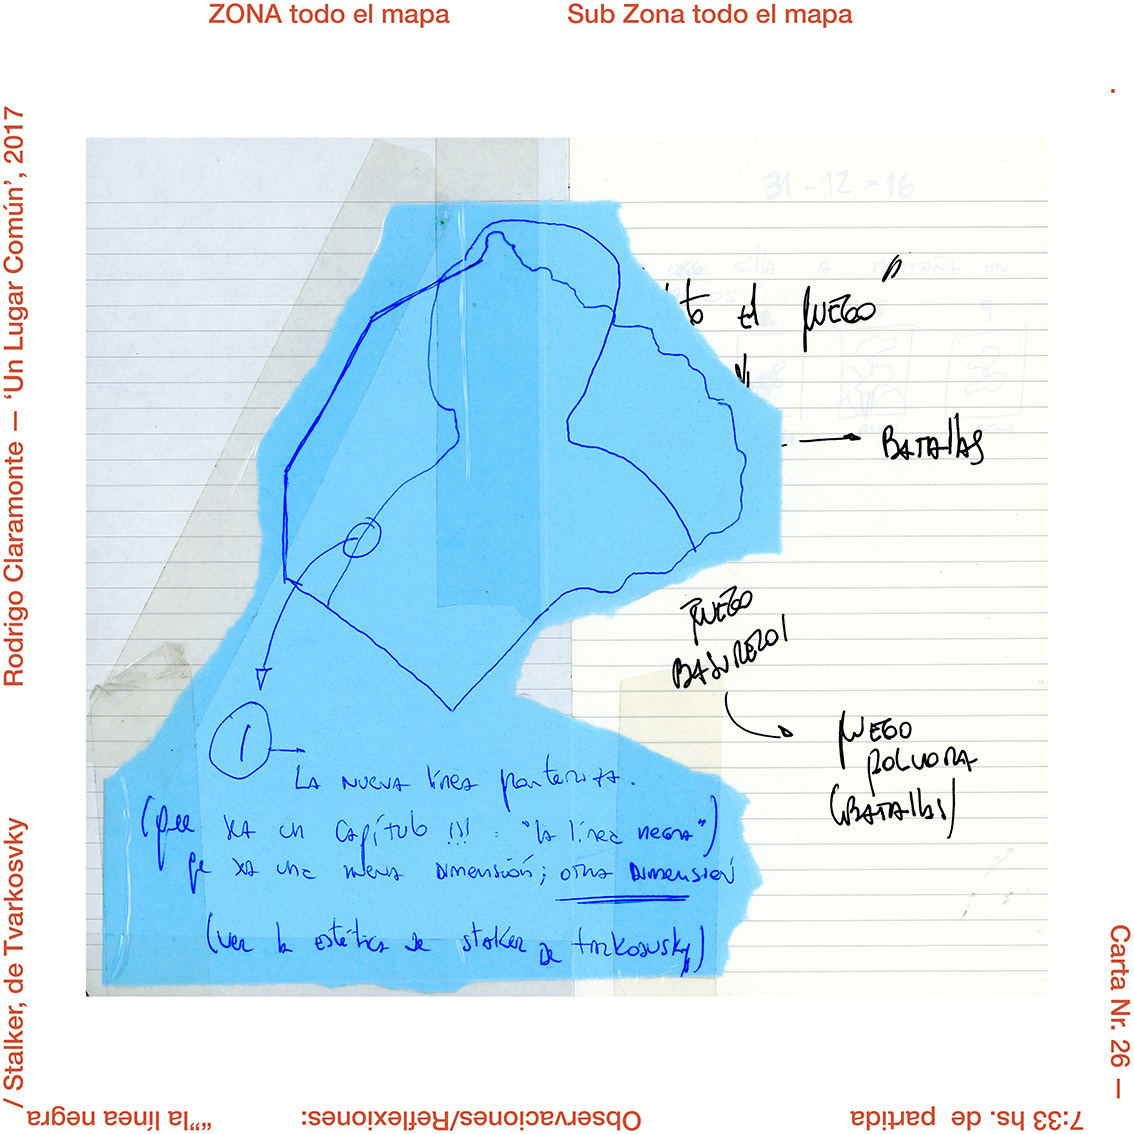 ZONA todo el mapa
Sub Zona todo el mapa
.
Carta Nr. 26 —
7:33 hs. de partida
Observaciones/Reflexiones:
""la línea negra
/ Stalker, de Tvarkosvky
Rodrigo Claramonte — ‘Un Lugar Común’, 2017
31 - 12 = 16
el JUEGO”
→ BATALLAS
JUEGO
BASURERO1
JUEGO
POLVORA
(BATALLAS)
1 →
LA NUEVA línea fronteriza.
(que un Capítulo !!! : "la línea negra")
una nueva DIMENSIÓN; OTRA DIMENSIÓN
(ver la estética de stalker DE tarkosvsky)